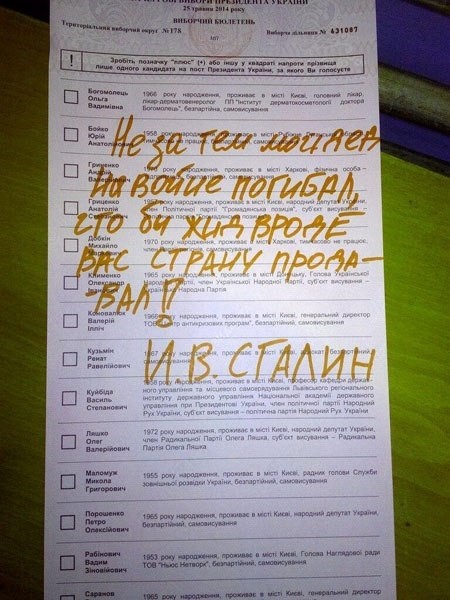 ВИБОРИ ПРЕЗИДЕНТА УКРАЇНИ
25 травня 2014 року
ВИБОРЧИЙ БЮЛЕТЕНЬ
Територіальний виборчий округ № 178
Виборча дільниця № 631087
!
Зробіть позначку "плюс" (+) або іншу у квадраті напроти прізвища
лише одного кандидата на пост Президента України, за якого Ви голосуєте
Богомолець
Ольга
Вадимівна
1966 року народження, проживає в місті Києві, головний лікар,
лікар-дерматовенеролог ПП "Інститут дерматокосметології доктора
Богомолець", безпартійна, самовисування
Бойко
Юрій
Анатолійович
1958 року народження, проживає в місті
Гриценко
Андрій
року народження, проживає в місті Харкові, фізична особа -
Гриценко
Анатолій
Степанович
народження, проживає в місті Києві, народний депутат України,
Політичної партії "Громадянська позиція", суб'єкт висування –
партія "Громадянська позиція"
Добкін
Михайло
1970 року народження, проживає в місті Харкові, тимчасово не працює,
Клименко
Олександр
1965 року народження, проживає в місті Донецьку, Голова Української
Народної Партії, член Української Народної Партії, суб'єкт висування –
Українська Народна Партія
Коновалюк
Валерій
Ілліч
року народження, проживає в місті Києві, генеральний директор
ТОВ "Центр антикризових програм", безпартійний, самовисування
Кузьмін
Ренат
Равелійович
1967 року народження, проживає в місті Києві,
Куйбіда
Василь
Степанович
1958 року народження, проживає в місті Києві, професор кафедри держав-
ного управління та місцевого самоврядування Львівського регіонального
інституту державного управління Національної академії державного
управління при Президентові України, член політичної партії Народний
Рух України, суб'єкт висування – політична партія Народний Рух України
Ляшко
Олег
Валерійович
1972 року народження, проживає в місті Києві, народний депутат України,
член Радикальної Партії Олега Ляшка, суб'єкт висування – Радикальна
Партія Олега Ляшка
Маломуж
Микола
Григорович
1955 року народження, проживає в місті Києві, радник голови Служби
зовнішньої розвідки України, безпартійний, самовисування
Порошенко
Петро
Олексійович
1965 року народження, проживає в місті Києві, народний депутат України,
безпартійний, самовисування
Рабінович
Вадим
Зіновійович
1953 року народження, проживає в місті Києві, Голова Наглядової ради
ТОВ "Ньюс Нетворк", безпартійний, самовисування
Саранов
1965 року народження, проживає в місті Києві, генеральний директор
Не за тем мой дед
на войне погибал,
что би жид вроде
вас страну прода-
вал!!
И.В. Сталин